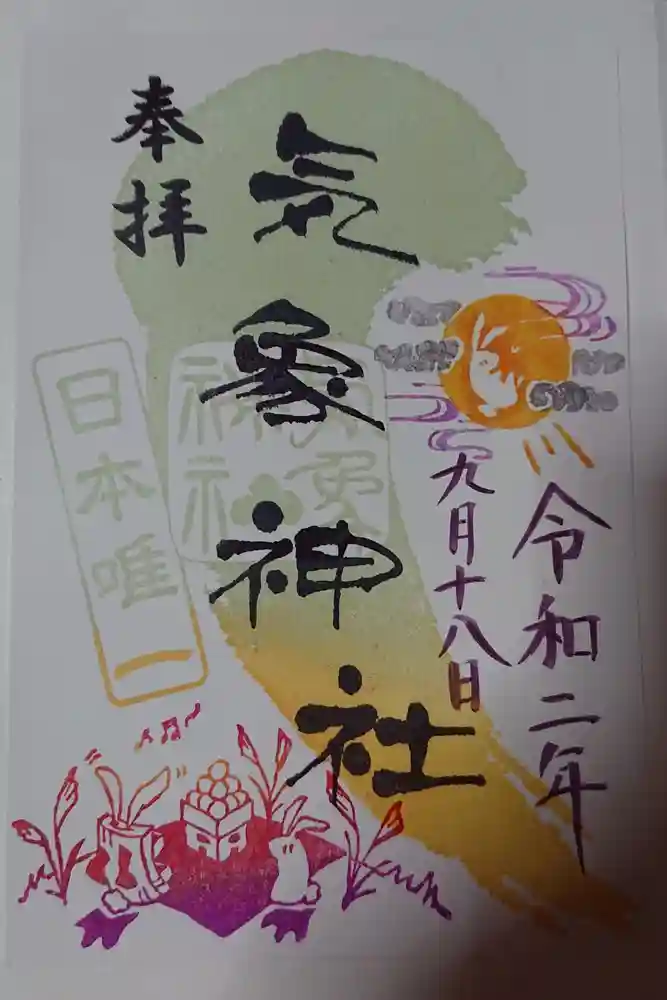 令和二年
九月十八日
気象神社
奉拝
気象
神社
日本唯一